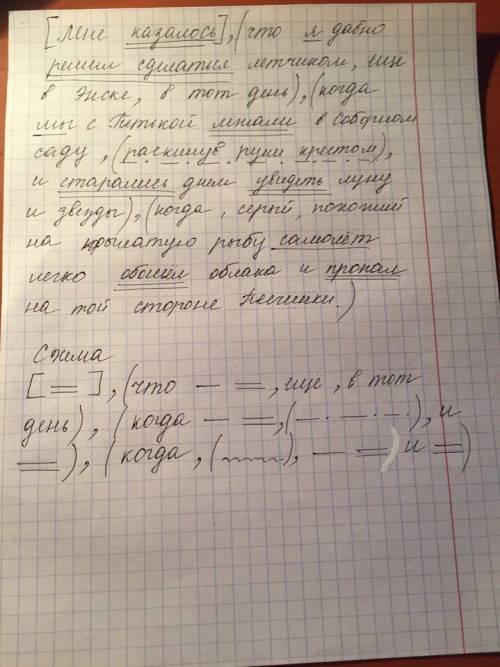 [Мне казалось], (что я давно
решил сделаться летчиком, ещё
в Энске, в тот день), (когда
мы с Петькой лежали в соборном
саду, (раскинув руки крестом),
и старались днем увидеть луну
и звезды), (когда, серый, похожий
на крылатую рыбу самолёт
легко обошёл облака и пропал
на той стороне Песчинки.)
Схема
[=], (что — =, еще, в тот
день), (когда — =, (—·—·—·), и
=), (когда, (﹏﹏), — =) и =)